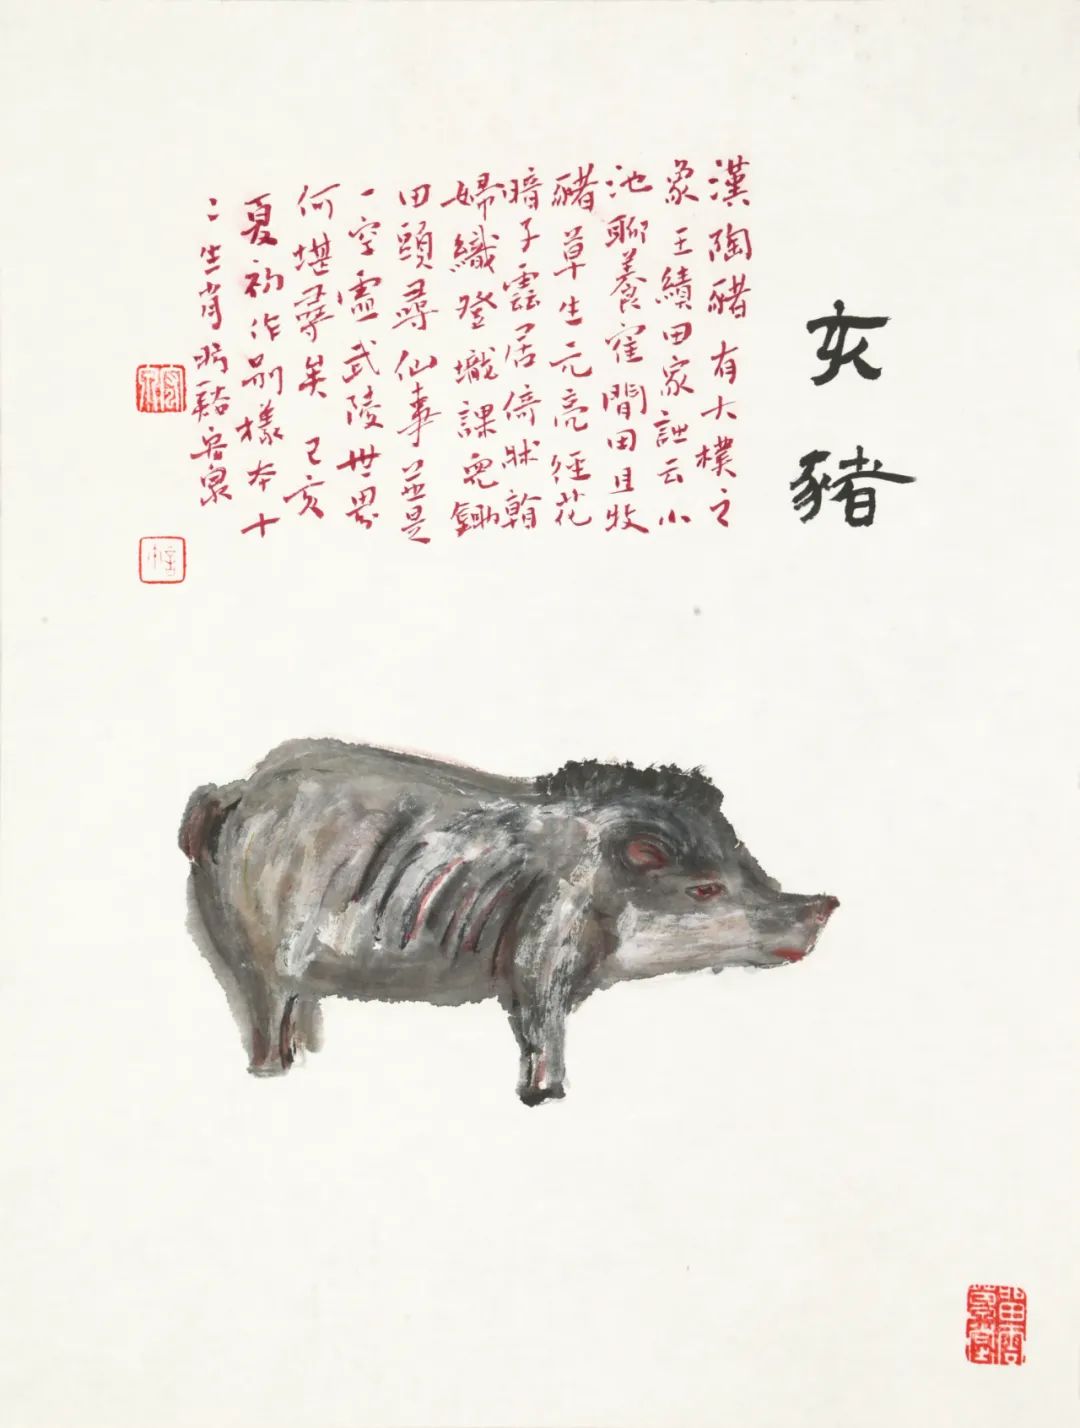 亥豬
漢陶豬有大樸之
象王績田家詩云小
池聊養隺閒田且牧
豬草生元亮徑花
暗子雲居倚牀看
婦織登壠課兒鋤
田頭尋仙事並是
一空虛武陵世界
何堪尋矣 己亥
夏初作別樣本十
二生肖